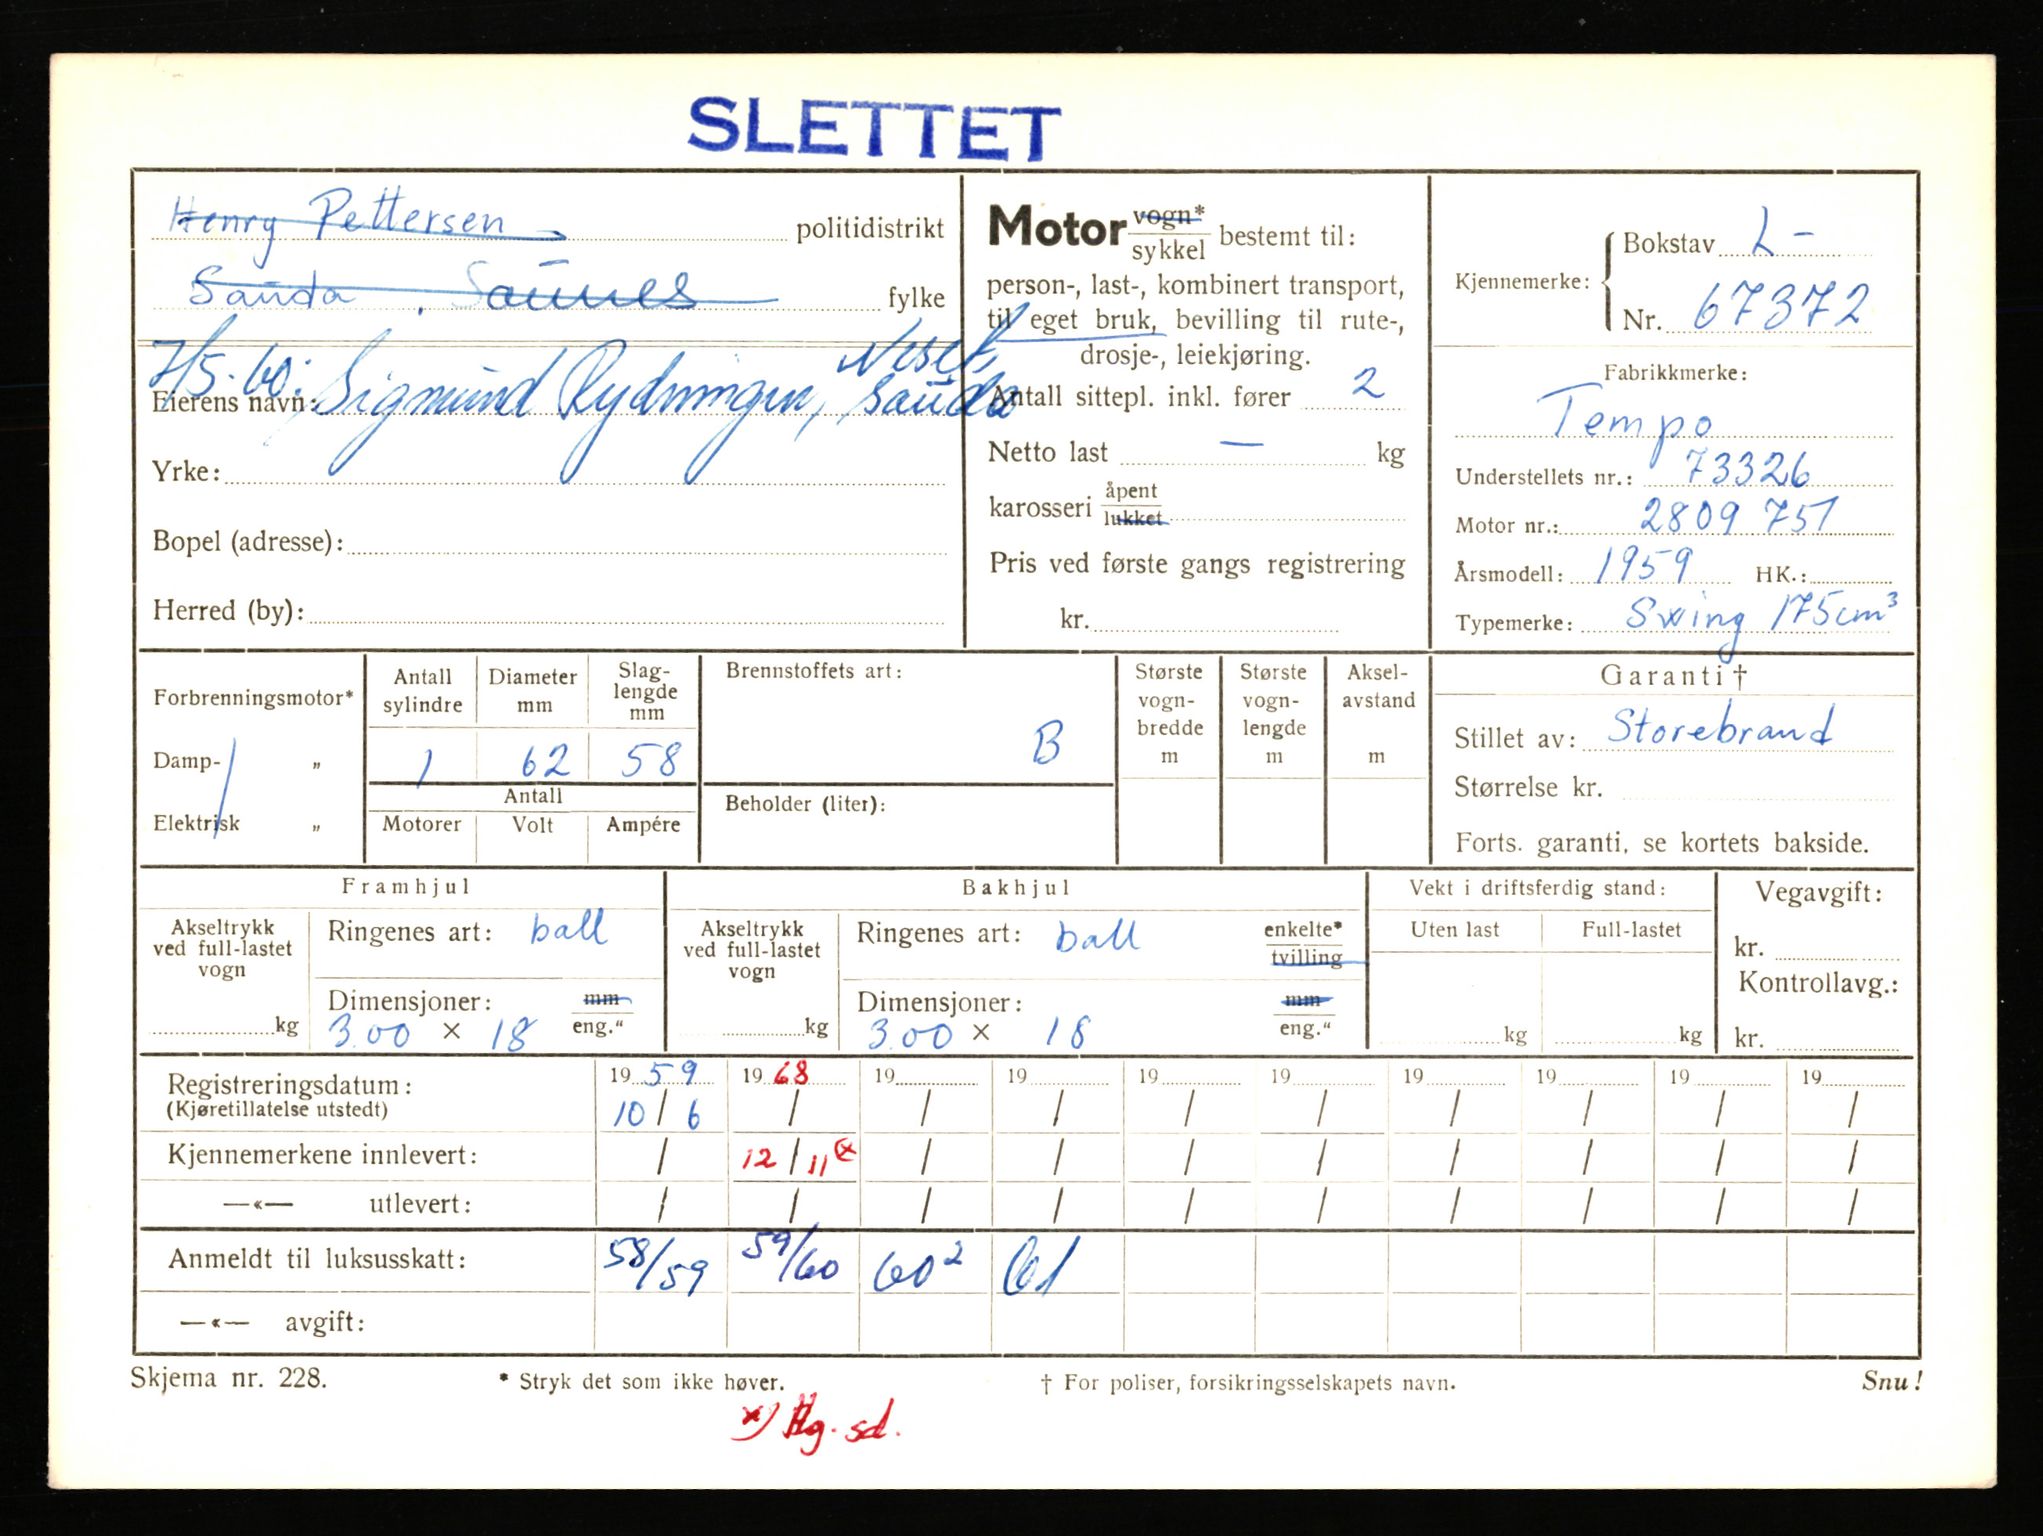 SLETTET
Henry Pettersen politidistrikt
Sauda, Saunes fylke
7/5-60: Sigmund Rydningen, Neset, Sauda
Eierens navn:
Yrke:
Bopel (adresse):
Herred (by):
Motor vogn* / sykkel bestemt til:
person-, last-, kombinert transport,
til eget bruk, bevilling til rute-,
drosje-, leiekjøring.
Antall sittepl. inkl. fører 2
Netto last — kg
karosseri åpent / lukket
Pris ved første gangs registrering
kr.
Kjennemerke: Bokstav L-
Nr. 67372
Fabrikkmerke:
Tempo
Understellets nr.: 73326
Motor nr.: 2809 751
Årsmodell: 1959 HK.:
Typemerke: Swing 175 cm³
Forbrenningsmotor*
Damp- „
Elektrisk „
Antall sylindre 1
Diameter mm 62
Slag-lengde mm 58
Antall
Motorer Volt Ampére
Brennstoffets art:
B
Beholder (liter):
Største vogn-bredde m
Største vogn-lengde m
Aksel-avstand m
Garanti †
Stillet av: Storebrand
Størrelse kr.
Forts. garanti, se kortets bakside.
Framhjul
Akseltrykk ved full-lastet vogn
kg
Ringenes art: ball
Dimensjoner: mm / eng."
3.00 × 18
Bakhjul
Akseltrykk ved full-lastet vogn
kg
Ringenes art: ball enkelte* / tvilling
Dimensjoner: mm / eng."
3.00 × 18
Vekt i driftsferdig stand:
Uten last Full-lastet
kg kg
Vegavgift:
kr.
Kontrollavg.:
kr.
19 59 19 68 19 19 19 19 19 19 19 19
Registreringsdatum: 10 / 6 / / / / / / / / /
(Kjøretillatelse utstedt)
Kjennemerkene innlevert: / 12 / 11 x / / / / / / / /
—«— utlevert: / / / / / / / / / /
Anmeldt til luksusskatt: 58/59 59/60 60² 61
—«— avgift:
Skjema nr. 228. * Stryk det som ikke høver. † For poliser, forsikringsselskapets navn. Snu!
x) Hg. sd.